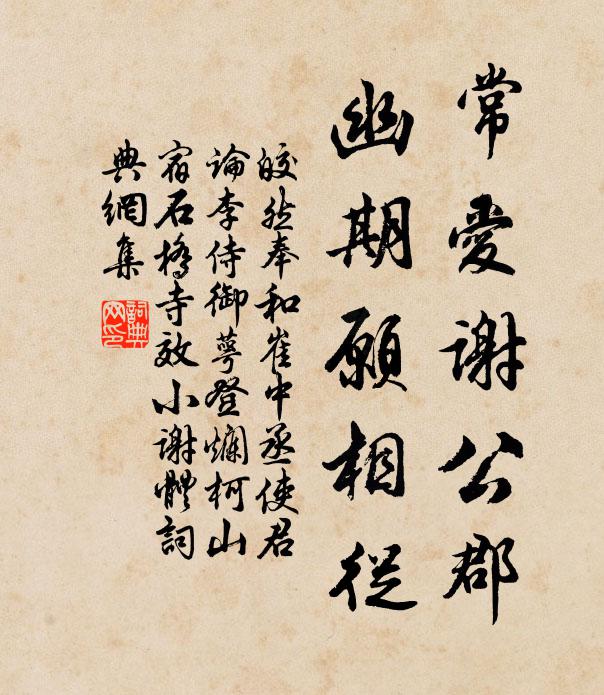 常愛謝公郡
幽期願相從
皎然奉和崔中丞使君
論李侍御萼登爛柯山
宿石橋寺效小謝體詞
典網集
詞典
网印